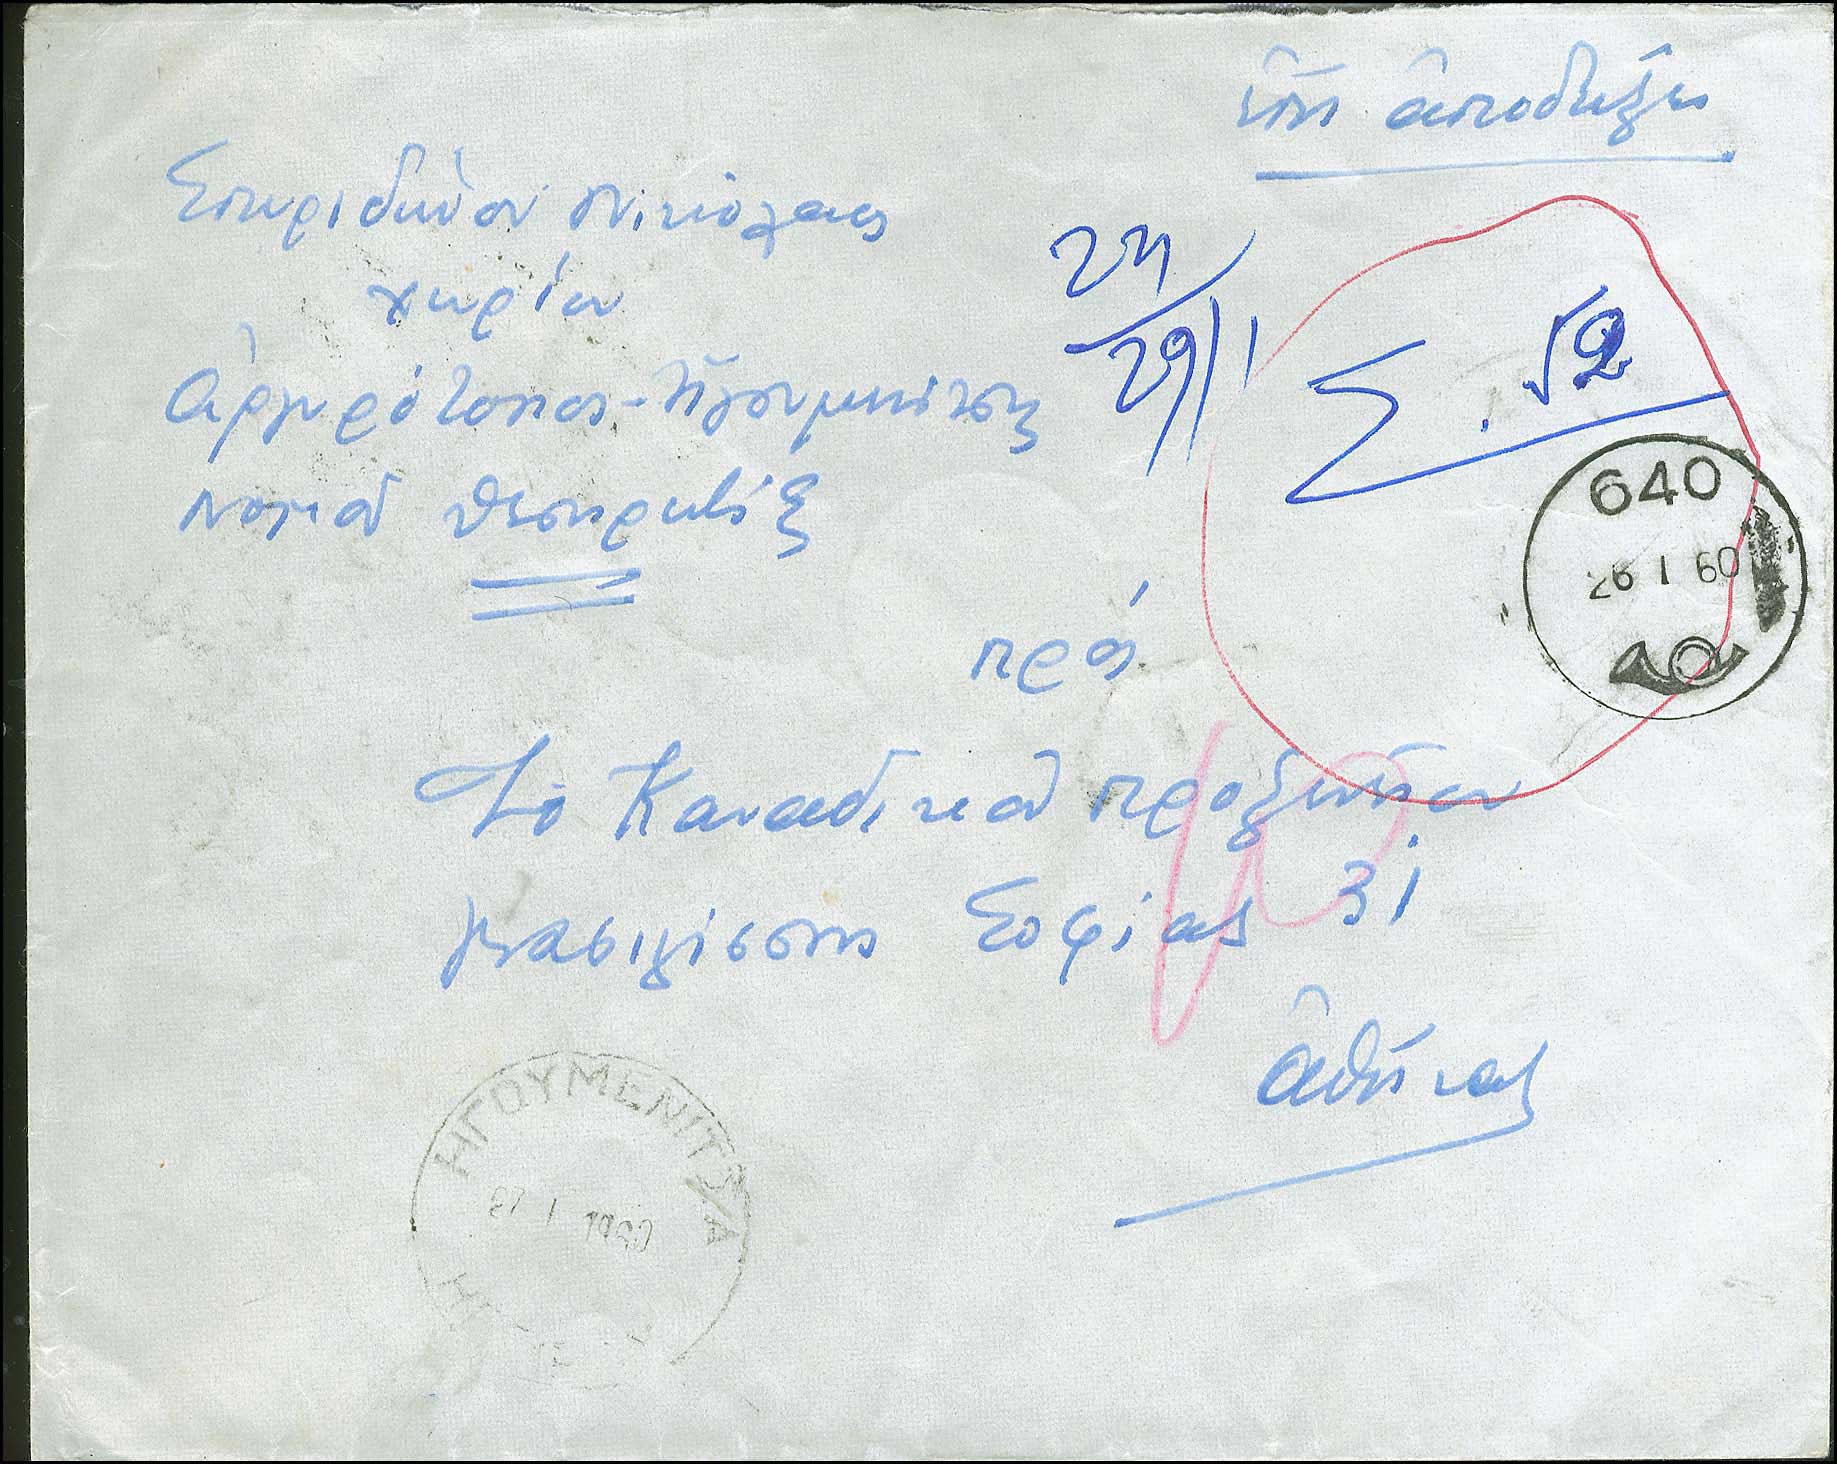 ἐπὶ ἀποδείξει
Σπυριδων Νικόλαος
χωρίον
Ἀργυρότοπος - Ἡγουμενίτσης
Νομοῦ Θεσπρωτίας
24
29/1
Σ. √2
640
26 I 60
πρός
Τὸ Καναδικον προξενείον
Βασιλίσσης Σοφίας 31
Ἀθήνας
ΗΓΟΥΜΕΝΙΤΣΑ
27 I 1960